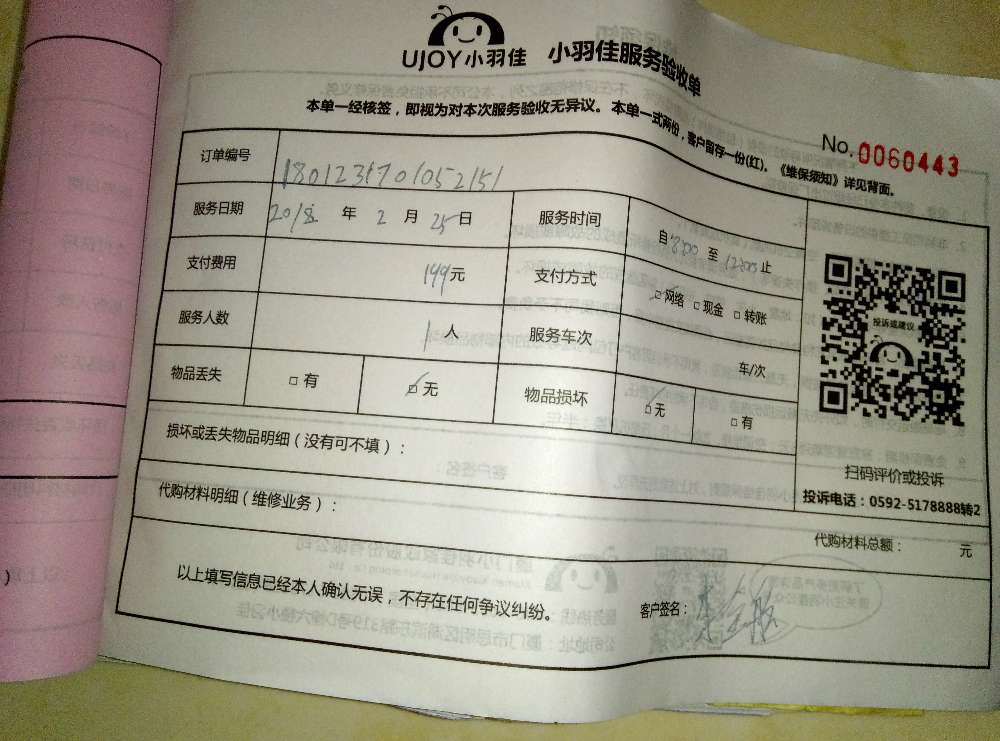 UJOY小羽佳 小羽佳服务验收单
本单一经核签，即视为对本次服务验收无异议。本单一式两份，客户留存一份(红)。《维保须知》详见背面。
No.0060443
订单编号 1801231701052151
服务日期 2018年2月25日 服务时间 自8:00至12:00止
支付费用 149元 支付方式 □网络 □现金 □转账
投诉或建议
服务人数 1人 服务车次 车/次
物品丢失 □有 □无 物品损坏 □无 □有
损坏或丢失物品明细（没有可不填）：
扫码评价或投诉
投诉电话：0592-5178888转2
代购材料明细（维修业务）：
代购材料总额： 元
以上填写信息已经本人确认无误，不存在任何争议纠纷。 客户签名：